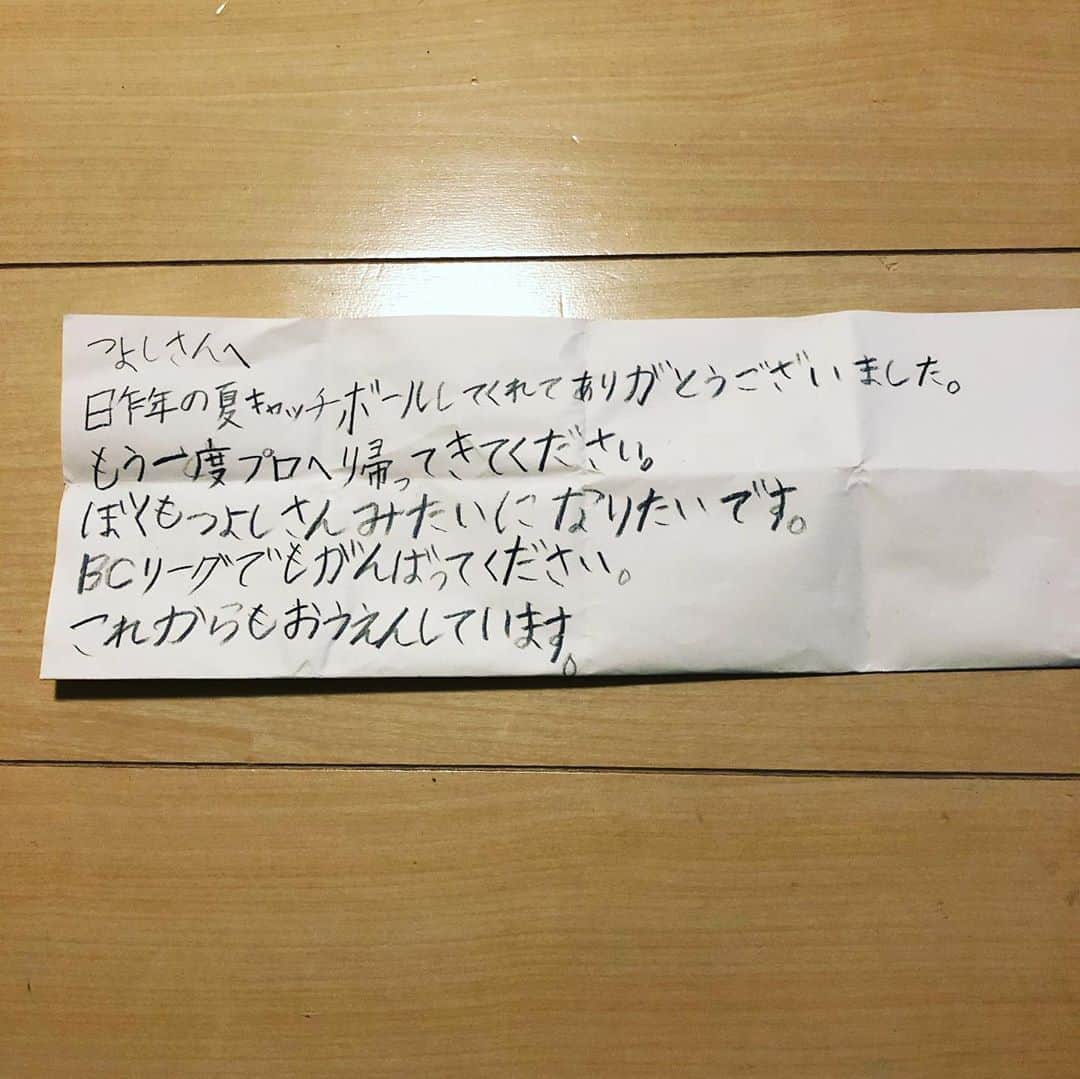 つよしさんへ
昨年の夏キャッチボールしてくれてありがとうございました。
もう一度プロへ帰ってきてください。
ぼくもつよしさんみたいになりたいです。
BCリーグでもがんばってください。
これからもおうえんしています。